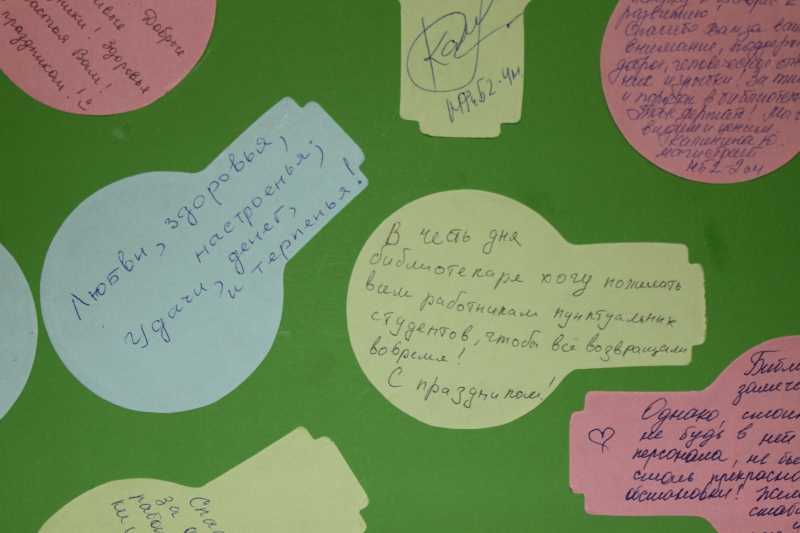 Добрые
Здоровья
Вам!
праздником!
МПБ2-4м
развитию.
Спасибо Вам за ваше
внимание, поддержку,
доброе, человеческое
и улыбки! За тишину
и порядок в библиотеке
Так держать! Мы Вас
видим и ценим.
Калинина Ю.
магистрант
Любви, здоровья,
настроенья,
удачи, денег,
и терпенья!
В честь дня
библиотекаря хочу пожелать
всем работникам пунктуальных
студентов, чтобы всё возвращали
вовремя!
С праздником!
Однако, стоит
не будь в ней
персонала, не бы
столь прекрасно
обстановки! Жела
стаби
Спас
за
рабо